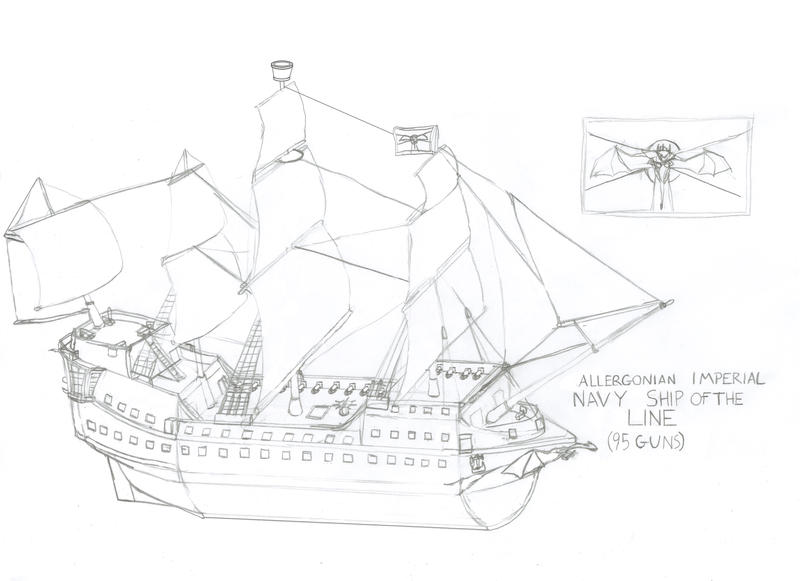 ALLERGONIAN IMPERIAL
NAVY SHIP OF THE
LINE
(95 GUNS)